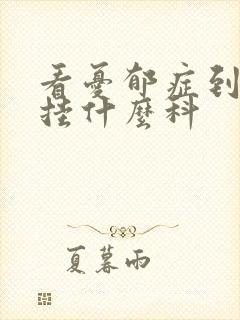 看憂郁症到
挂什麼科
夏暮雨